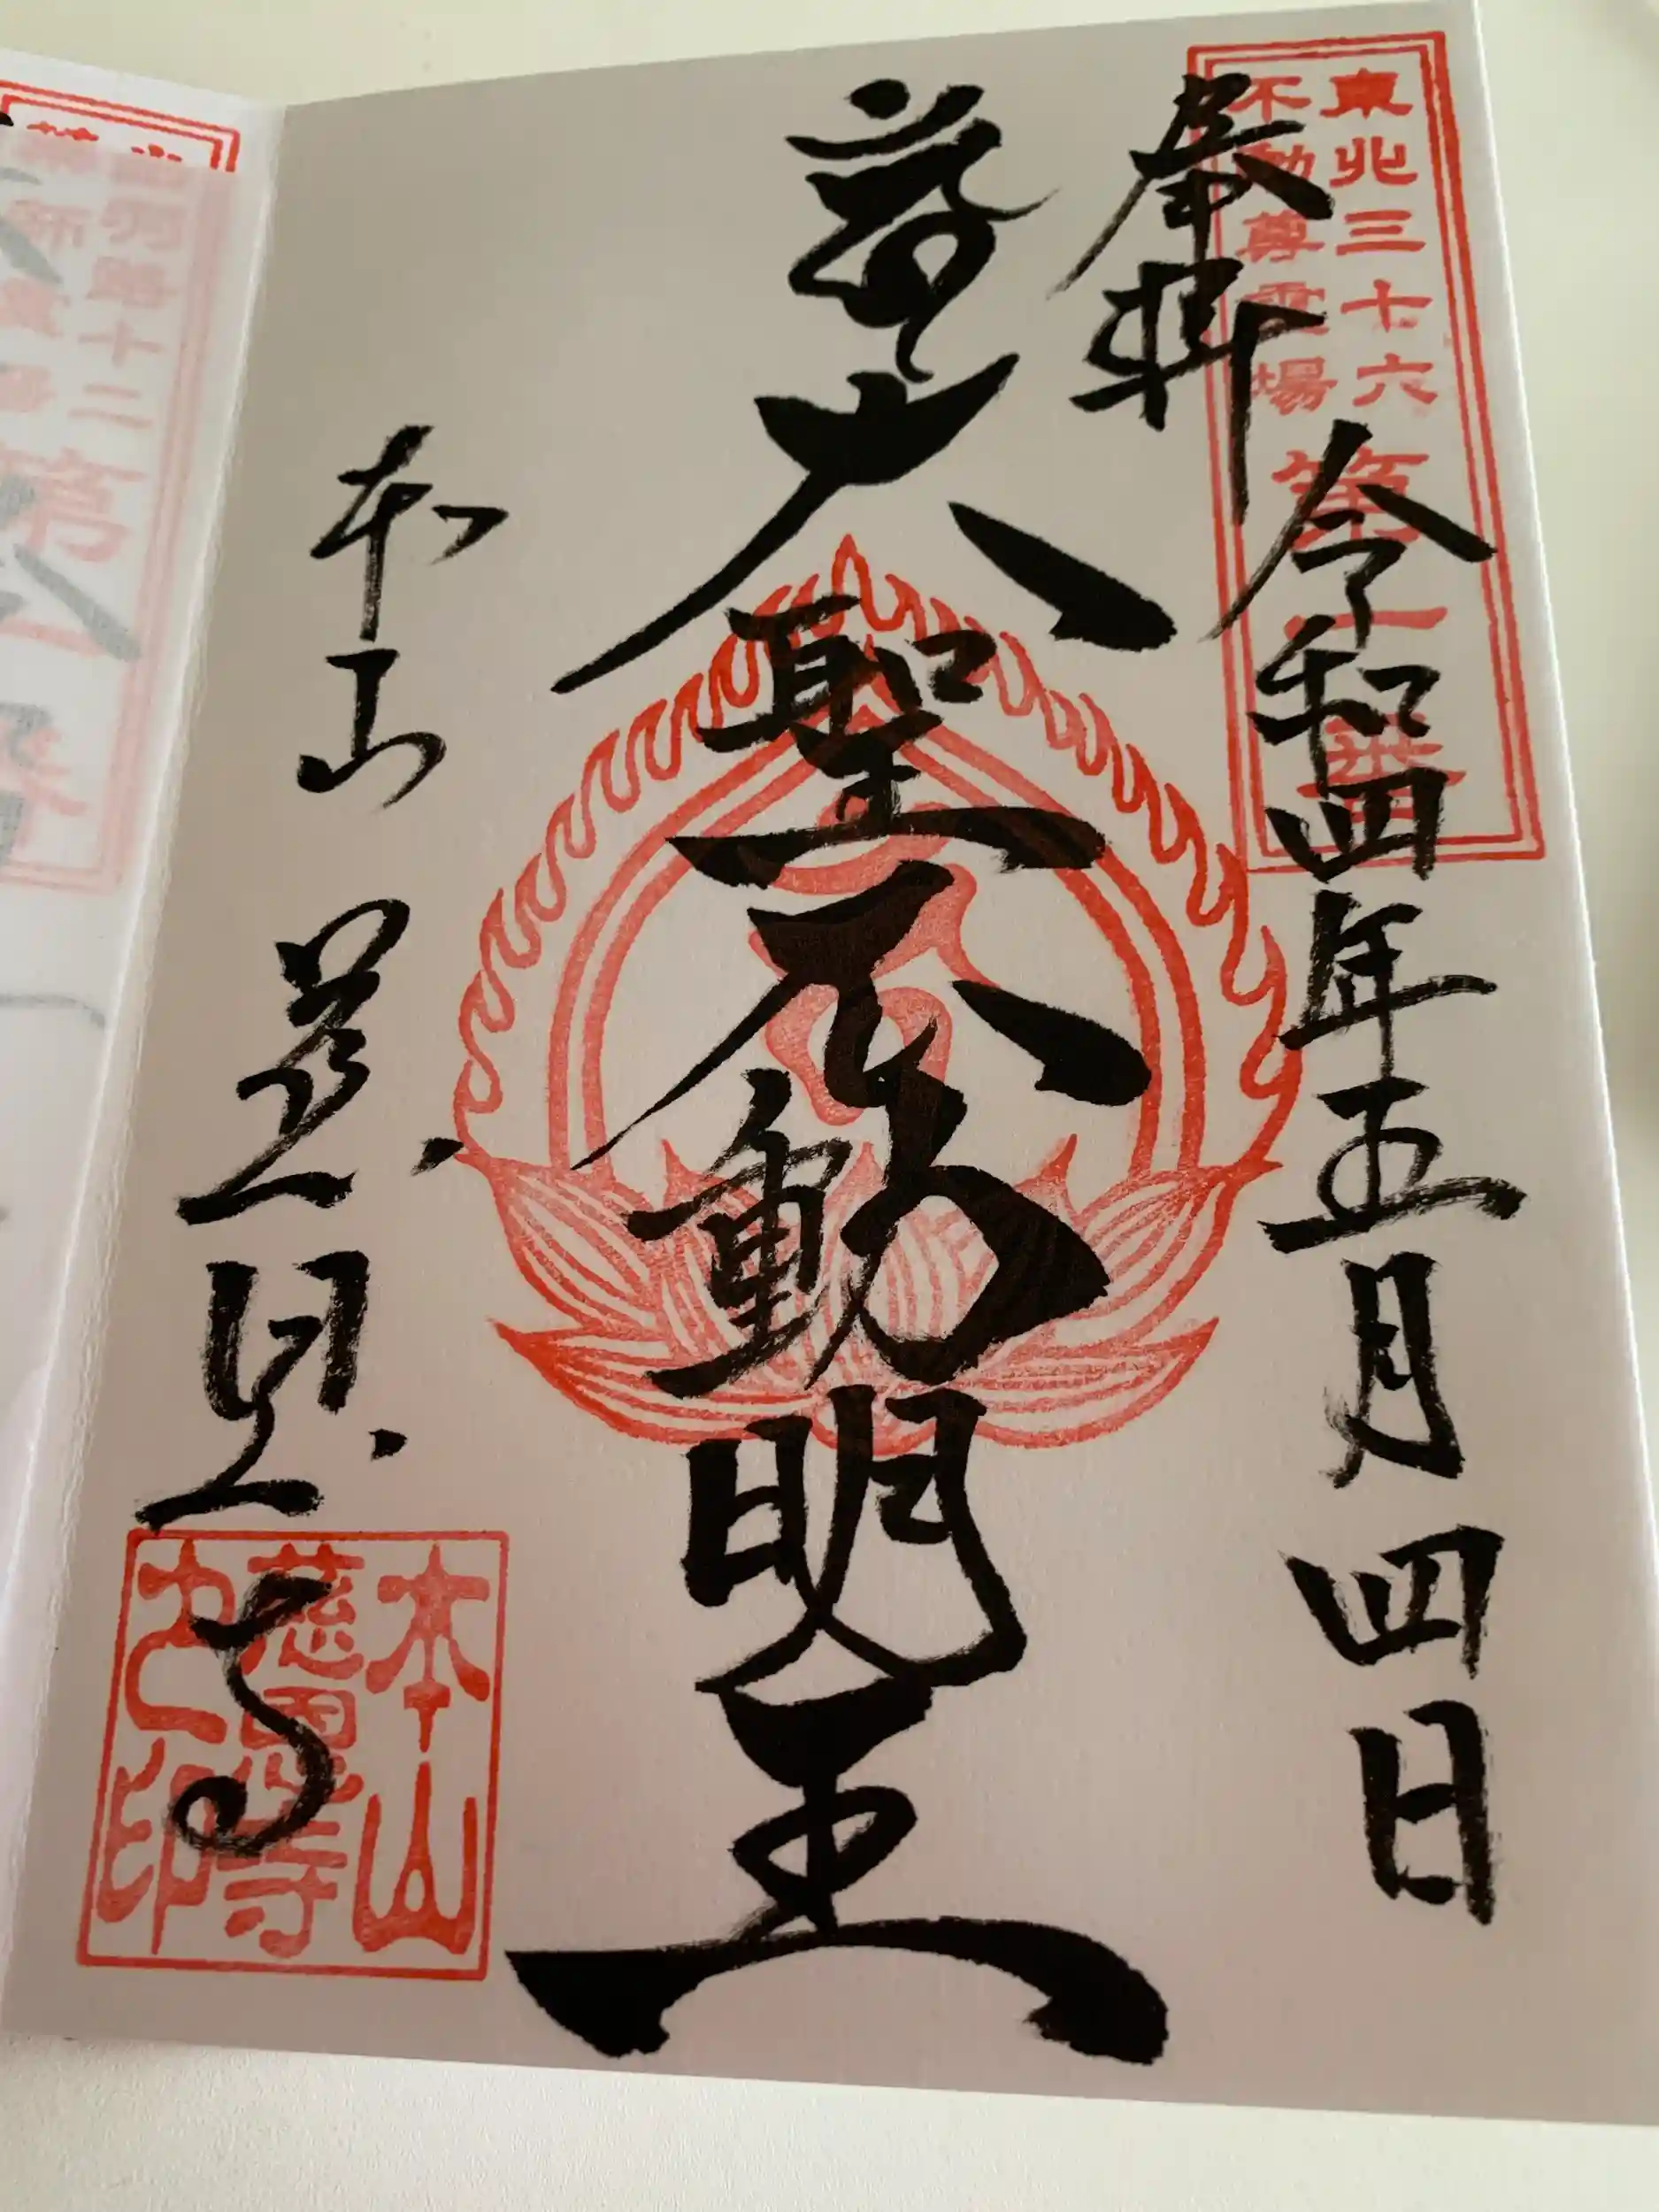 東北三十六
不動尊霊場
第一番
奉拝
令和四年五月四日
大聖不動明王
本山
慈恩寺
本山
慈恩寺
之印